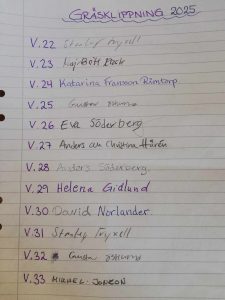 GRÄSKLIPPNING 2025
V.22
V.23 Maj-Britt
V.24 Katarina Fransson Rimtorp.
V.25 Gustav
V.26 Eva Söderberg
V.27 Anders och Christina Thörén
V.28 Anders Söderberg
V.29 Helena Gidlund
V.30 David Norlander
V.31
V.32 Gustav
V.33 MIKAEL JONSON